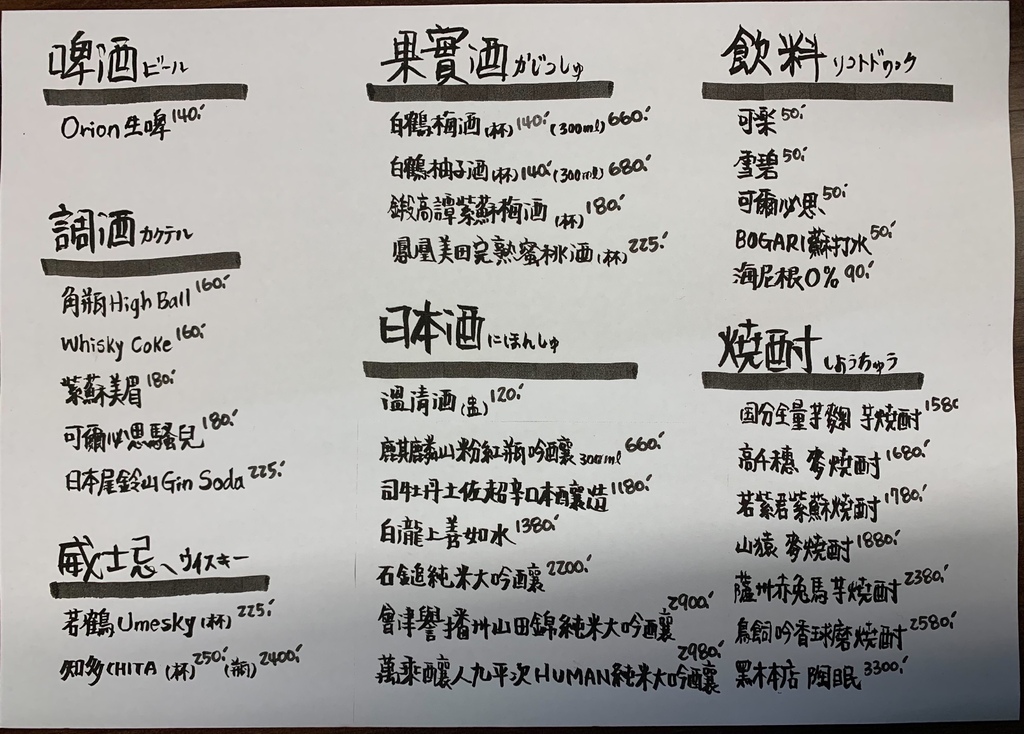 啤酒 ビール
Orion生啤 140.-
調酒 カクテル
角瓶High Ball 160.-
Whisky Coke 160.-
紫蘇美眉 180.-
可爾必思騷兒 180.-
日本尾鈴山Gin Soda 225.-
威士忌 ウイスキー
若鶴Umesky(杯) 225.-
知多CHITA (杯) 250.- (瓶) 2400.-
果實酒 かじつしゅ
白鶴梅酒(杯) 140.- (300ml) 660.-
白鶴柚子酒(杯) 140.- (300ml) 680.-
鍛高譚紫蘇梅酒(杯) 180.-
鳳凰美田完熟蜜桃酒(杯) 225.-
日本酒 にほんしゅ
溫清酒(盅) 120.-
麒麟山粉紅瓶吟釀300ml 660.-
司牡丹土佐超辛口本釀造 1180.-
白瀧上善如水 1380.-
石鎚純米大吟釀 2200.-
會津譽播州山田錦純米大吟釀 2900.-
萬乘釀人九平次HUMAN純米大吟釀 2980.-
飲料 ソフトドリンク
可樂 50.-
雪碧 50.-
可爾必思 50.-
BOGARI蘇打水 50.-
海尼根0% 90.-
燒酎 しょうちゅう
国分全量芋麴 芋燒酎 158
高千穗 麥燒酎 1680.-
若紫君紫蘇燒酎 1780.-
山猿 麥燒酎 1880.-
薩州赤兔馬芋燒酎 2380.-
鳥飼吟香球磨燒酎 2580.-
黑木本店 陶眠 3300.-